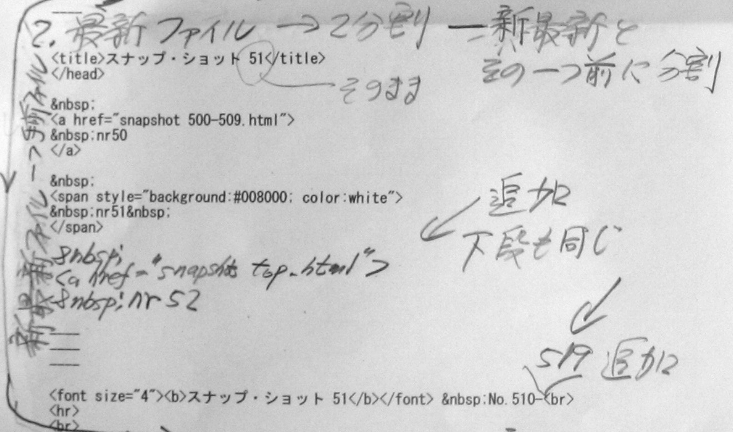 2. 最新ファイル →2分割 — 新最新と
その一つ前に分割
<title>スナップ・ショット 51</title>
</head>
そのまま
&nbsp;
<a href="snapshot 500-509.html">
&nbsp;nr50
</a>
&nbsp;
<span style="background:#008000; color:white">
&nbsp;nr51&nbsp;
</span>
追加
下段も同じ
&nbsp;
<a href="snapshot top.html">
&nbsp;nr 52
新最新ファイル一つ前ファイル
519 追加
<font size="4"><b>スナップ・ショット 51</b></font> &nbsp;No.510-<br>
<hr>
<br>